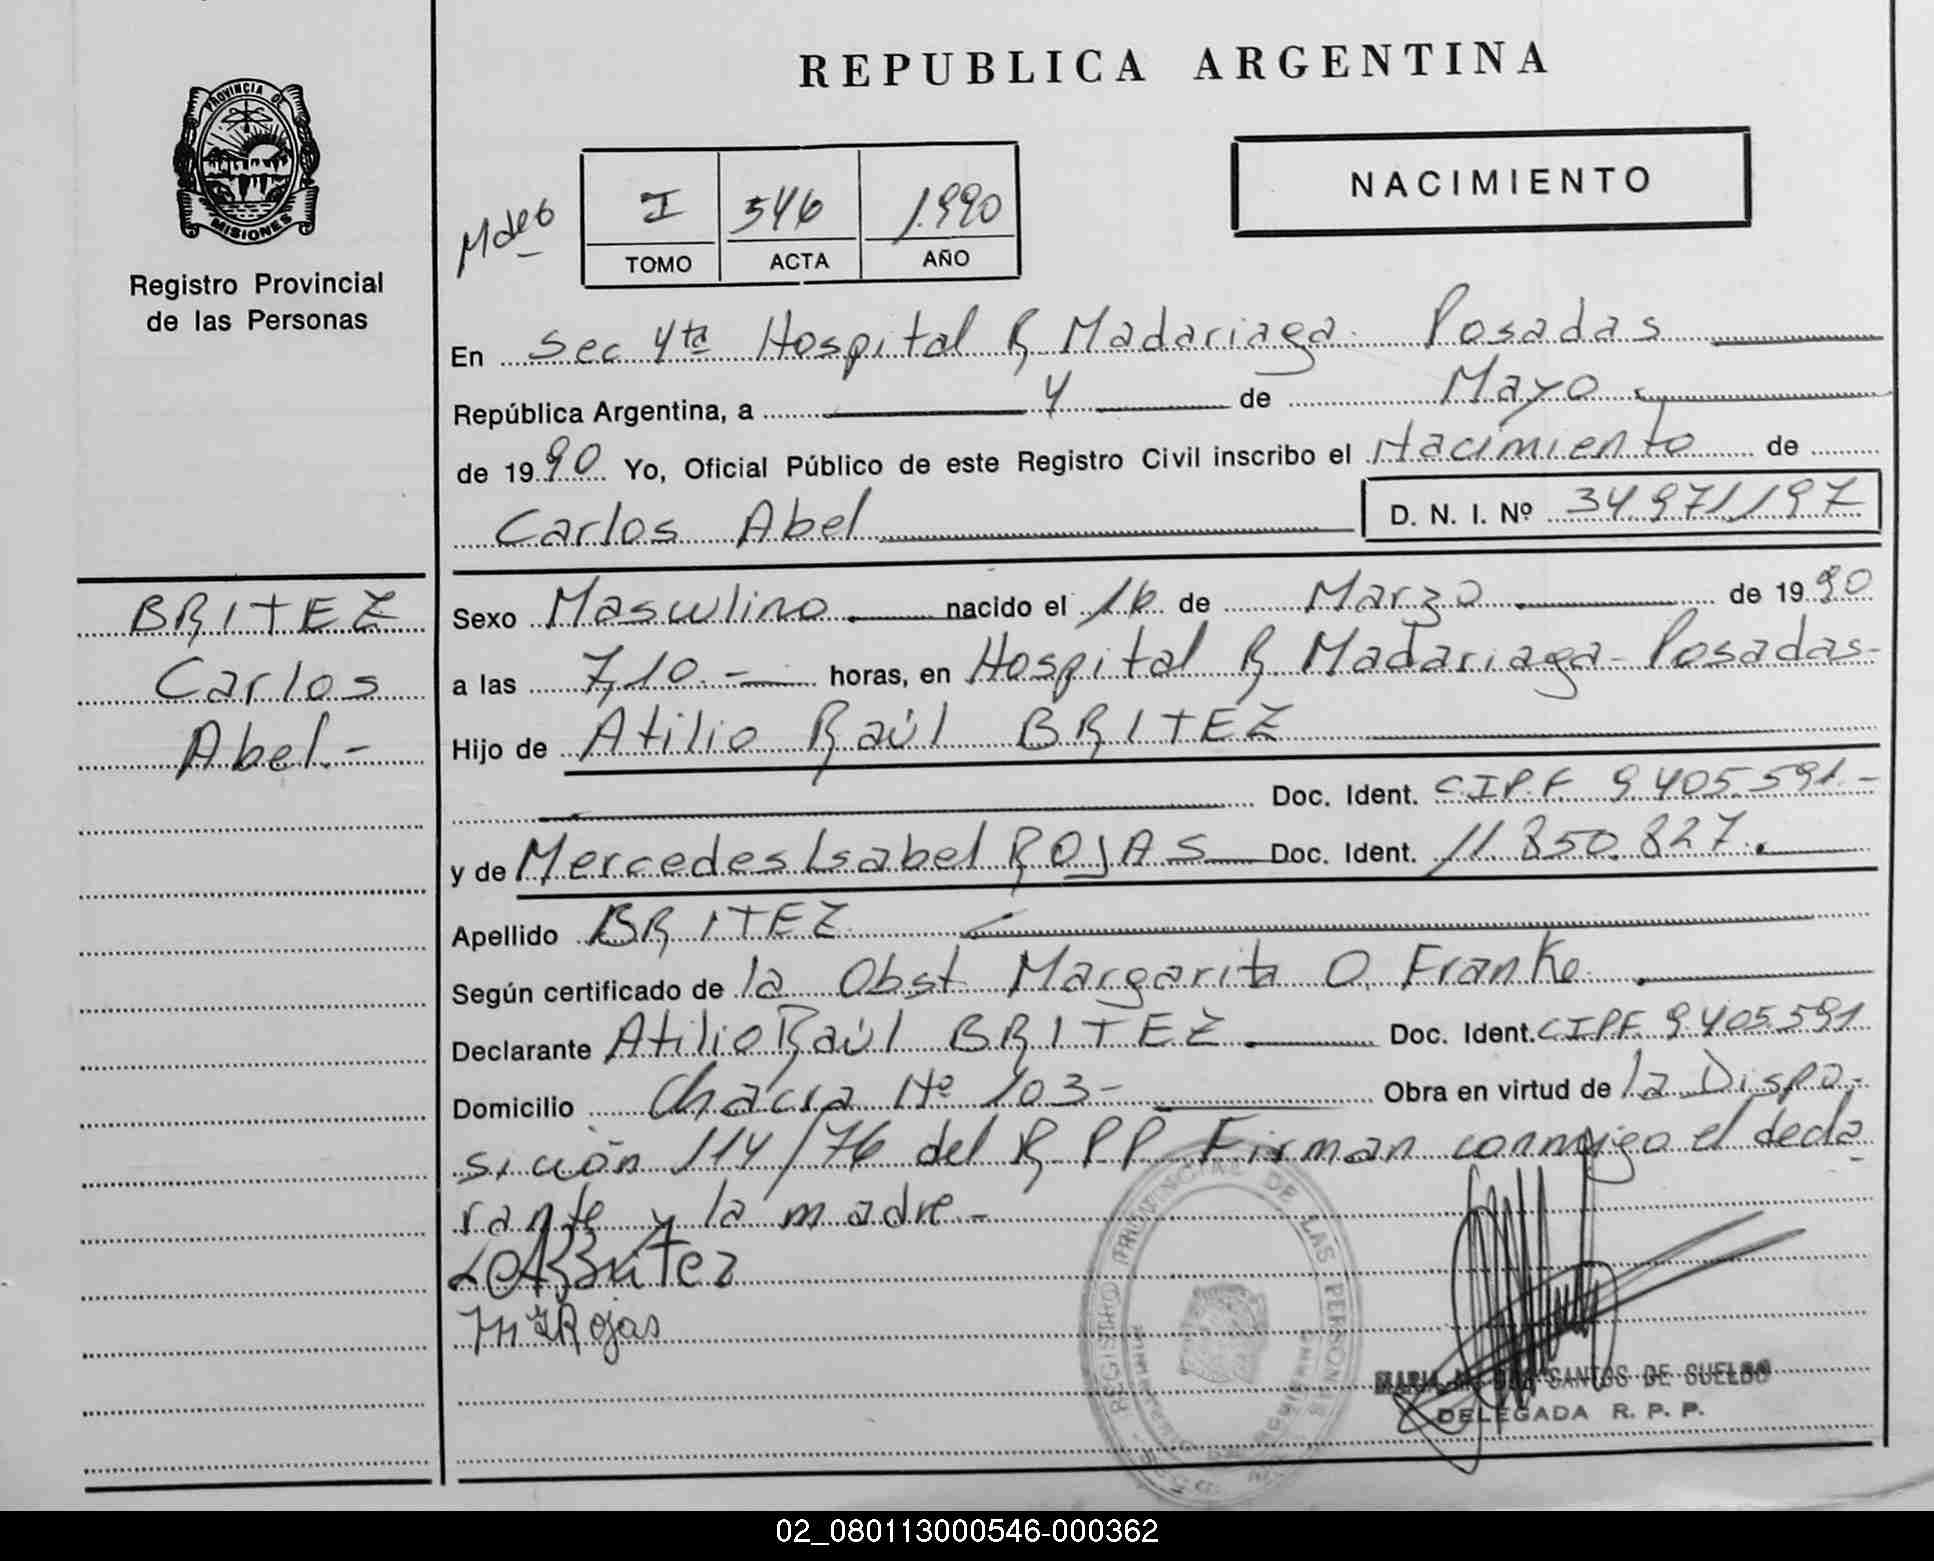 REPUBLICA ARGENTINA
PROVINCIA DE
MISIONES
Registro Provincial
de las Personas
NACIMIENTO
I 546 1.990
TOMO ACTA AÑO
En Sec 4ta Hospital R Madariaga. Posadas
República Argentina, a 4 de Mayo.
de 1990 Yo, Oficial Público de este Registro Civil inscribo el Nacimiento de
Carlos Abel D. N. I. Nº 34.971.197
BRITEZ
Carlos
Abel.-
Sexo Masculino. nacido el 16 de Marzo de 1990
a las 7,10.- horas, en Hospital R Madariaga-Posadas-
Hijo de Atilio Raúl BRITEZ
Doc. Ident. C.I.P.F. 9.405.591.-
y de Mercedes Isabel ROJAS Doc. Ident. 11.850.827.
Apellido BRITEZ
Según certificado de la Obst Margarita O. Franke.
Declarante Atilio Raúl BRITEZ. Doc. Ident. CIPF. 9.405.591
Domicilio Chacra Nº 103- Obra en virtud de la Dispo-
sición 114/76 del R P P Firman conmigo el decla
rante y la madre.-
Britez
Rojas
REGISTRO PROVINCIAL DE LAS PERSONAS
SANTOS DE SUELDO
DELEGADA R. P. P.
02_080113000546-000362